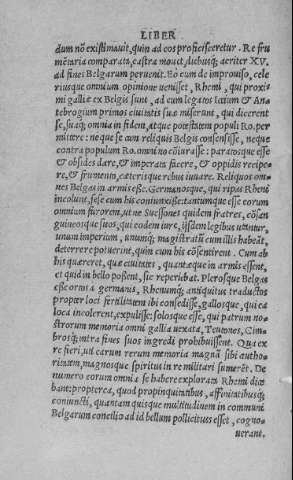 LIBER
dum nõ existimauit, quin ad eos proficisceretur. Re fru
mẽtaria comparata, castra mouet, diebusq; circiter XV.
ad fines Belgarum peruenit. Eo cum de improuiso, cele
riusque omnium opinione uenisset, Rhemi, qui proxi
mi galliæ ex Belgis sunt, ad eum legatos Iccium & An
tebrogium primos ciuitatis suæ miserunt, qui dicerent
se, suaq; omnia in fidem, atque potestatem populi Ro. per
mittere: neque se cum reliquis Belgis consensisse, neque
contra populum Ro. omnino cõiurasse: paratosque esse
& obsides dare, & imperata facere, & oppidis recipe
re, & frumento, cæterisque rebus iuuare. Reliquos om-
nes Belgas in armis esse. Germanosque, qui ripas Rheni
incolunt, sese cum his coniunxisse: tantumque esse eorum
omnium furorem, ut ne Suessones quidem fratres, cõsan
guineosque suos, qui eodem iure, iisdem legibus utantur,
unum imperium, unumq; magistratũ cum illis habeãt,
deterrere potuerint, quin cum his cõsentirent. Cum ab
his quæreret, quæ ciuitates, quantæque in armis essent,
et quid in bello possent, sic reperiebat. Plerosque Belgas
esse ortos a germanis, Rhenumq; antiquitus traductos
propter loci fertilitatem ibi consedisse, gallosque, qui ea
loca incolerent, expulisse: solosque esse, qui patrum no-
strorum memoria omni gallia uexata, Teutones, Cim-
brosq; intra fines suos ingredi prohibuissent. Qua ex
re fieri, uti earum rerum memoria magnã sibi autho-
ritatem, magnosque spiritus in re militari sumerẽt. De
numero eorum omnia se habere explorata Rhemi dice
bant: propterea, quod propinquitatibus, affinitatibusq;
coniuncti, quantam quisque multitudinem in communi
Belgarum concilio ad id bellum pollicitus esset, cogno-
uerant.